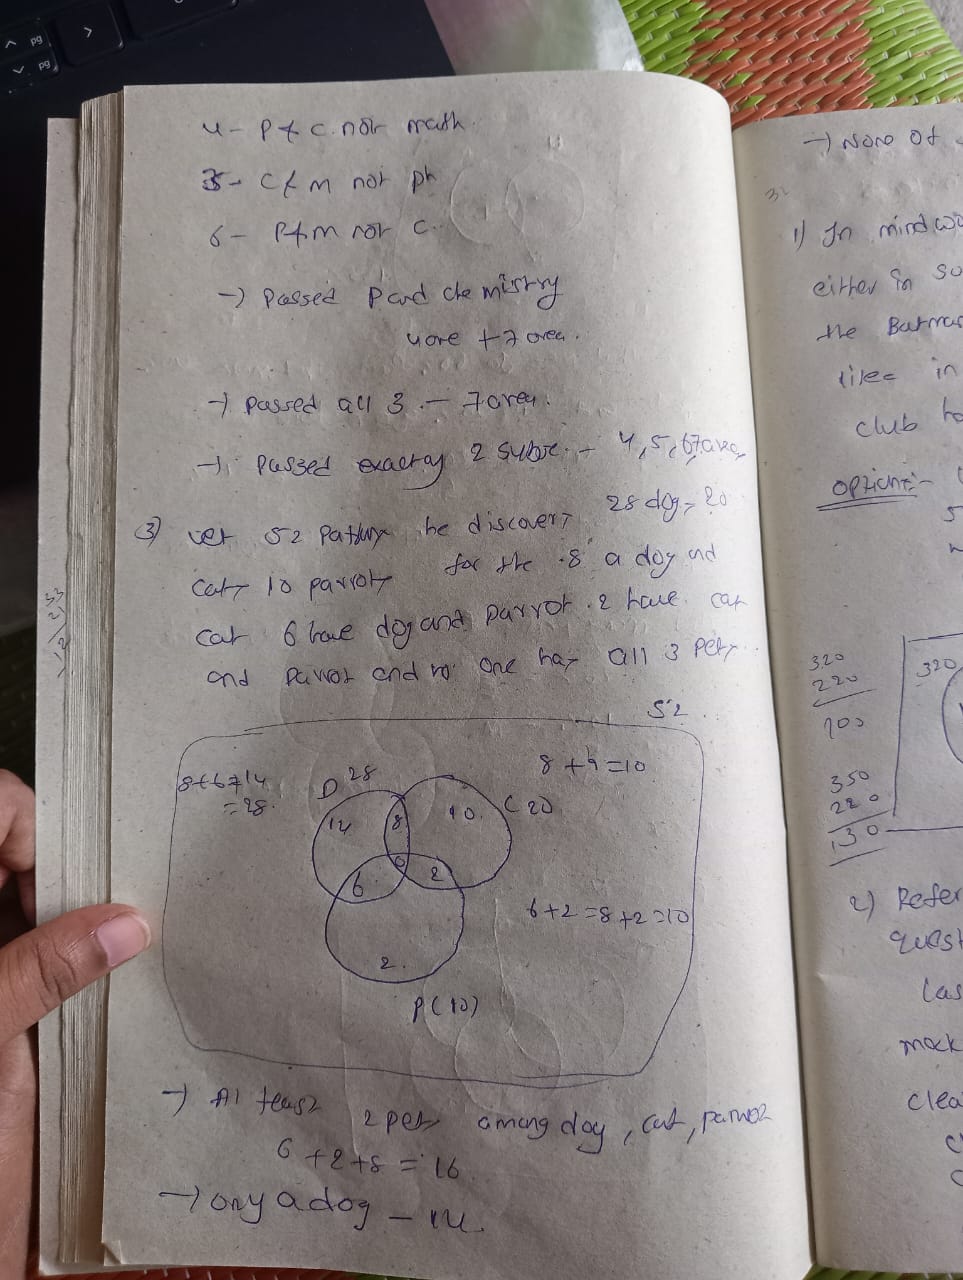 4 - P & C. not math.
5 - C & M not ph
6 - P & M not C.
→ Passed P and chemistry
4 are + 7 area.
→ passed all 3 - 7 area.
→ Passed exactly 2 - 4, 5, 6
28 dog, 20
③ vet 52 he discovers
cats 10 parrots for the 8 a dog and
cat 6 have dog and parrot. 2 have cat
and parrot and no one has all 3 pets.
52
8+6=14
=28
D 28
8 + =10
C 20
14
8
10
0
6
2
6+2=8+2=10
2
P(10)
→ At least 2 pets among dog, cat, parrot
6 + 2 + 8 = 16
→ ony a dog - 14.
33
21
12
→ None of
1) In
either in so
the
likes in
club
option:-
320
220
100
320
350
220
130
2) Refer
quest
las
mock
clea